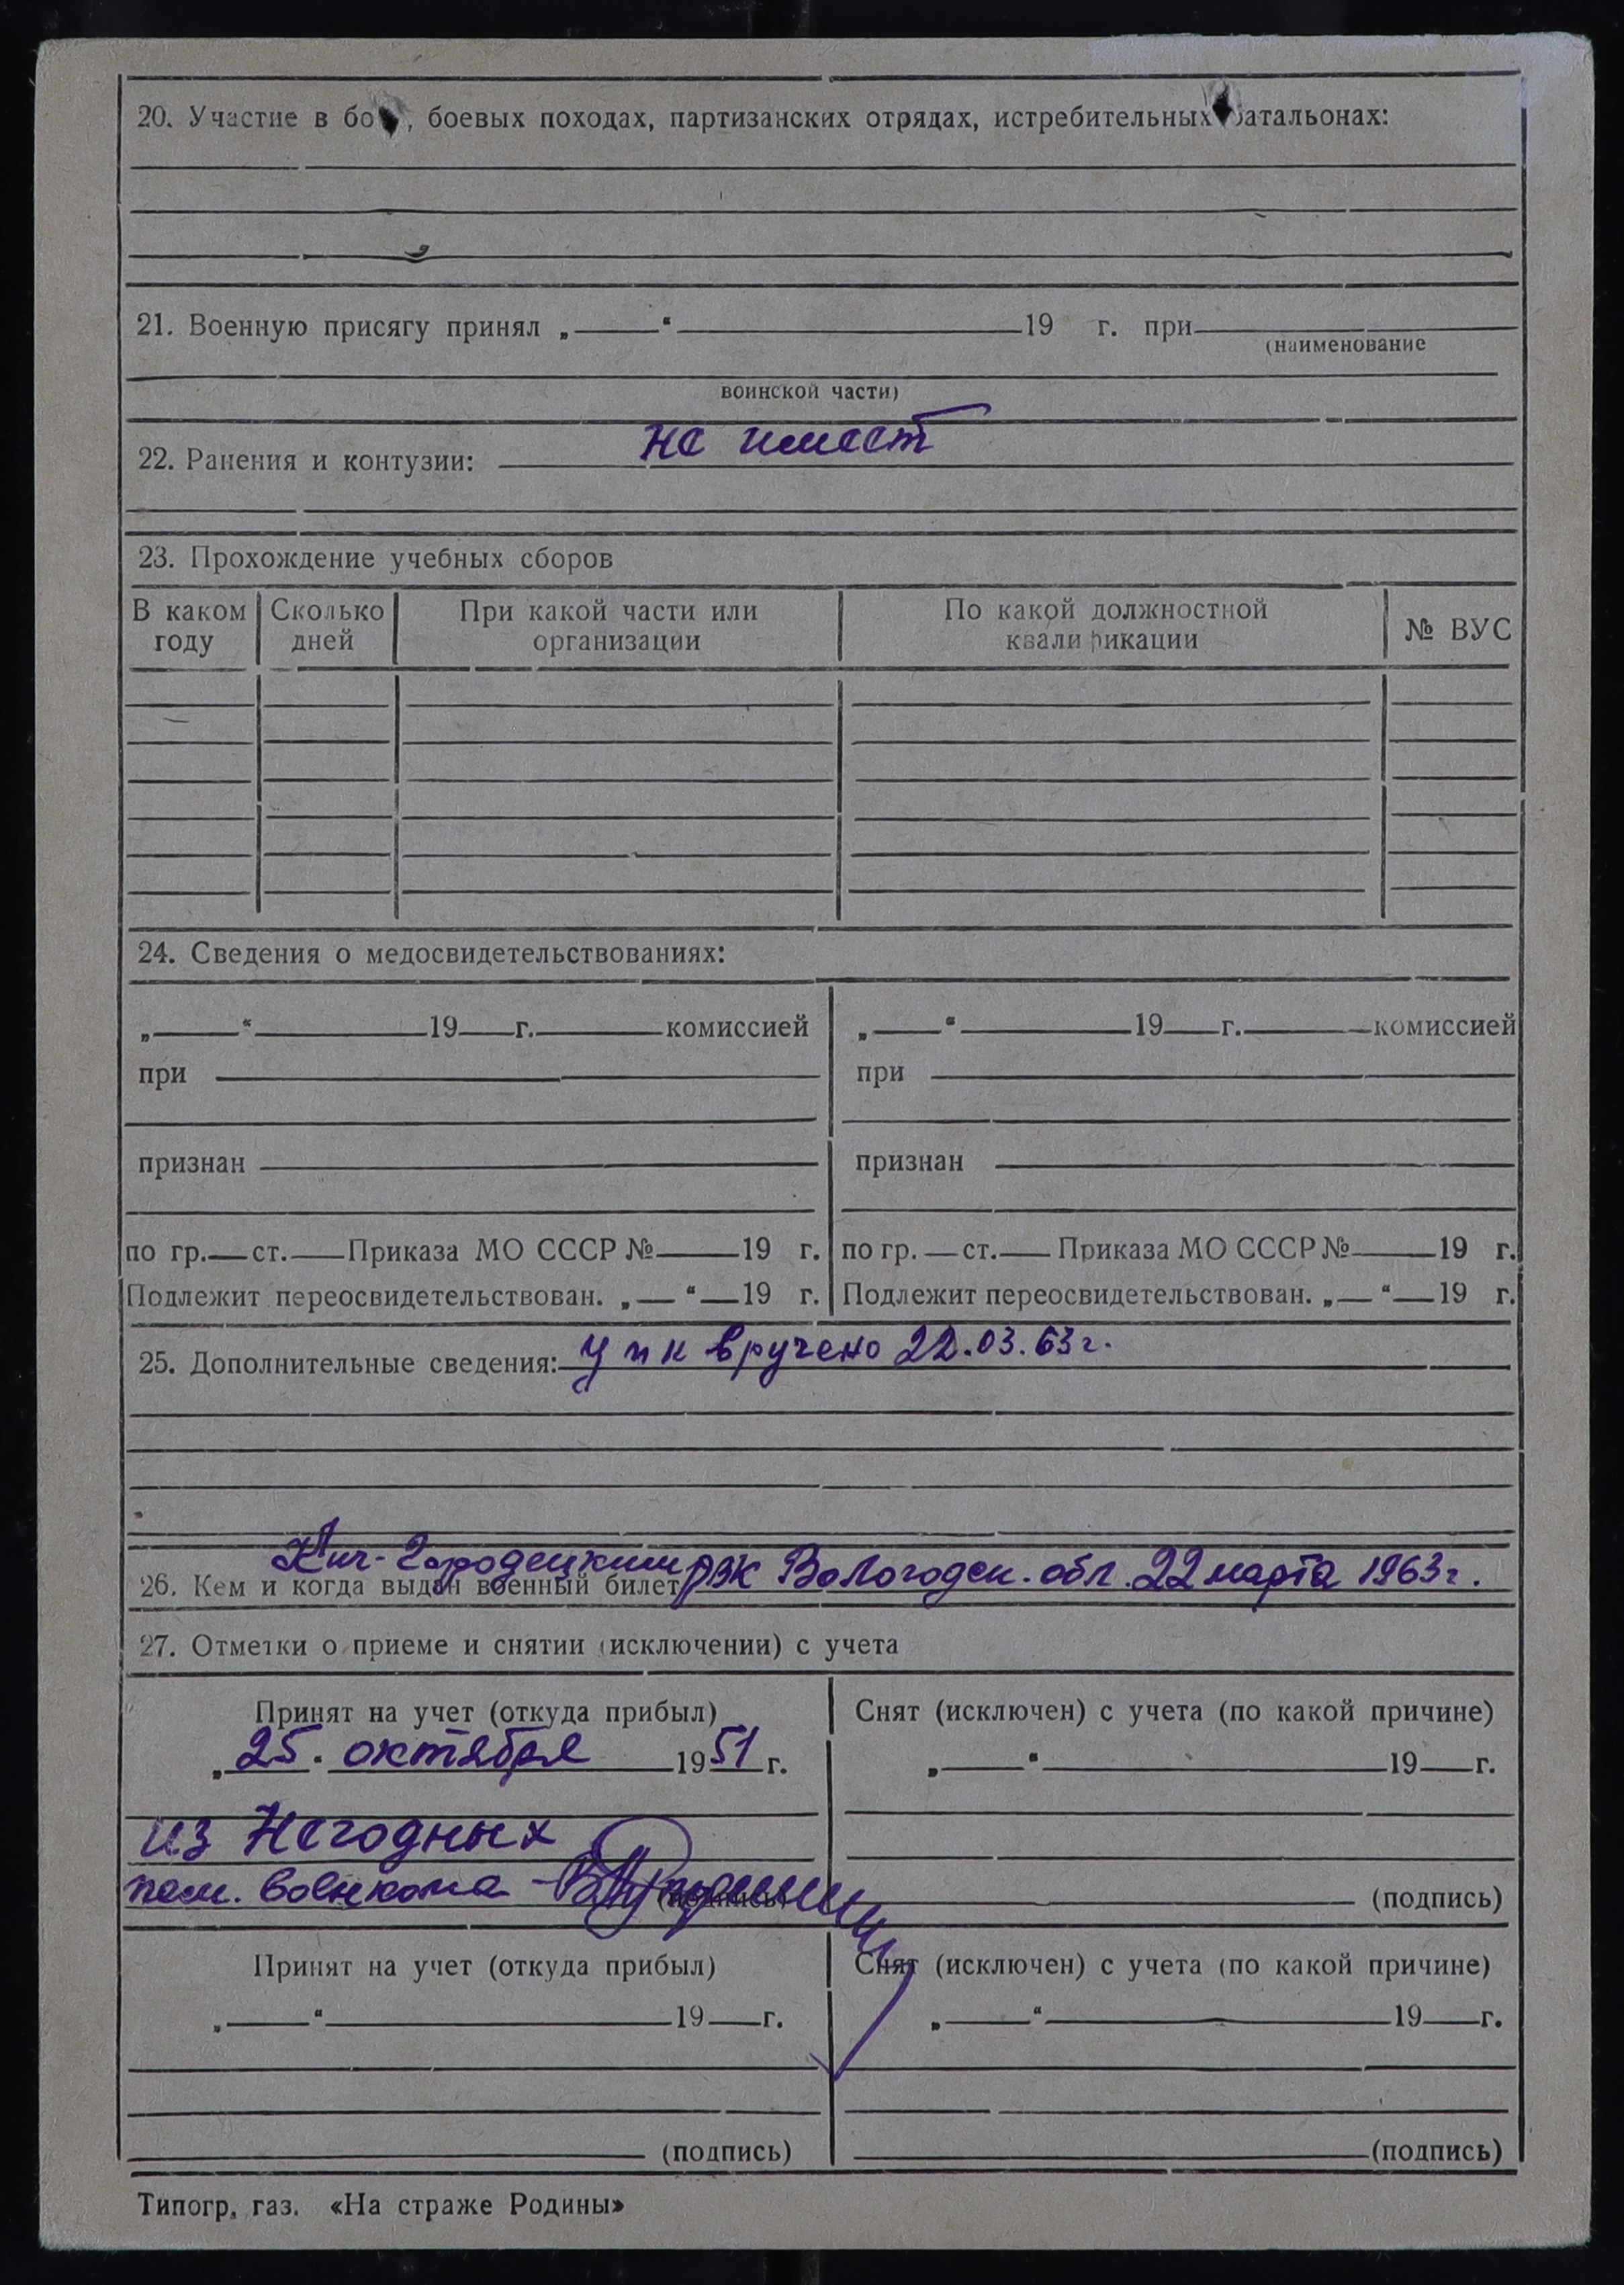 20. Участие в бо , боевых походах, партизанских отрядах, истребительных батальонах:
21. Военную присягу принял „ “ 19 г. при
(наименование
воинской части)
22. Ранения и контузии: не имеет
23. Прохождение учебных сборов
В каком году | Сколько дней | При какой части или организации | По какой должностной квалификации | № ВУС
24. Сведения о медосвидетельствованиях:
„ “ 19 г. комиссией | „ “ 19 г. комиссией
при | при
признан | признан
по гр. ст. Приказа МО СССР № 19 г. | по гр. ст. Приказа МО СССР № 19 г.
Подлежит переосвидетельствован. „ “ 19 г. | Подлежит переосвидетельствован. „ “ 19 г.
25. Дополнительные сведения: упк вручено 22.03.63г.
26. Кем и когда выдан военный билет Кич-Городецким РВК Вологодск. обл. 22 марта 1963г.
27. Отметки о приеме и снятии (исключении) с учета
Принят на учет (откуда прибыл) | Снят (исключен) с учета (по какой причине)
„ 25. октября 1951 г. | „ “ 19 г.
из Негодных
пом. военкома (подпись) | (подпись)
Принят на учет (откуда прибыл) | Снят (исключен) с учета (по какой причине)
„ “ 19 г. | „ “ 19 г.
(подпись) | (подпись)
Типогр. газ. «На страже Родины»